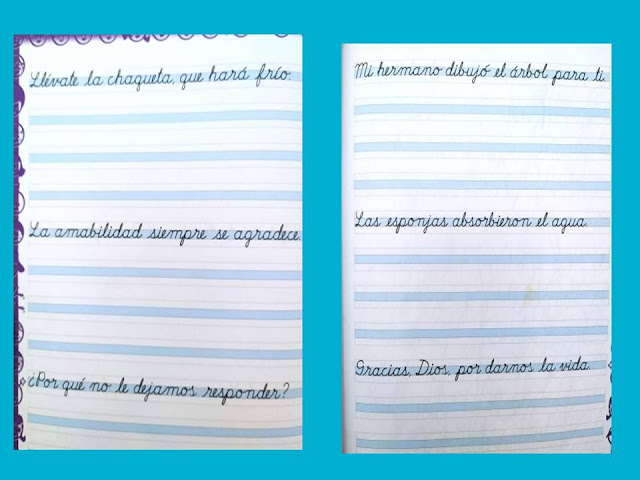 Llévate la chaqueta, que hará frío.
La amabilidad siempre se agradece.
¿Por qué no le dejamos responder?
Mi hermano dibujó el árbol para ti.
Las esponjas absorbieron el agua.
Gracias, Dios, por darnos la vida.